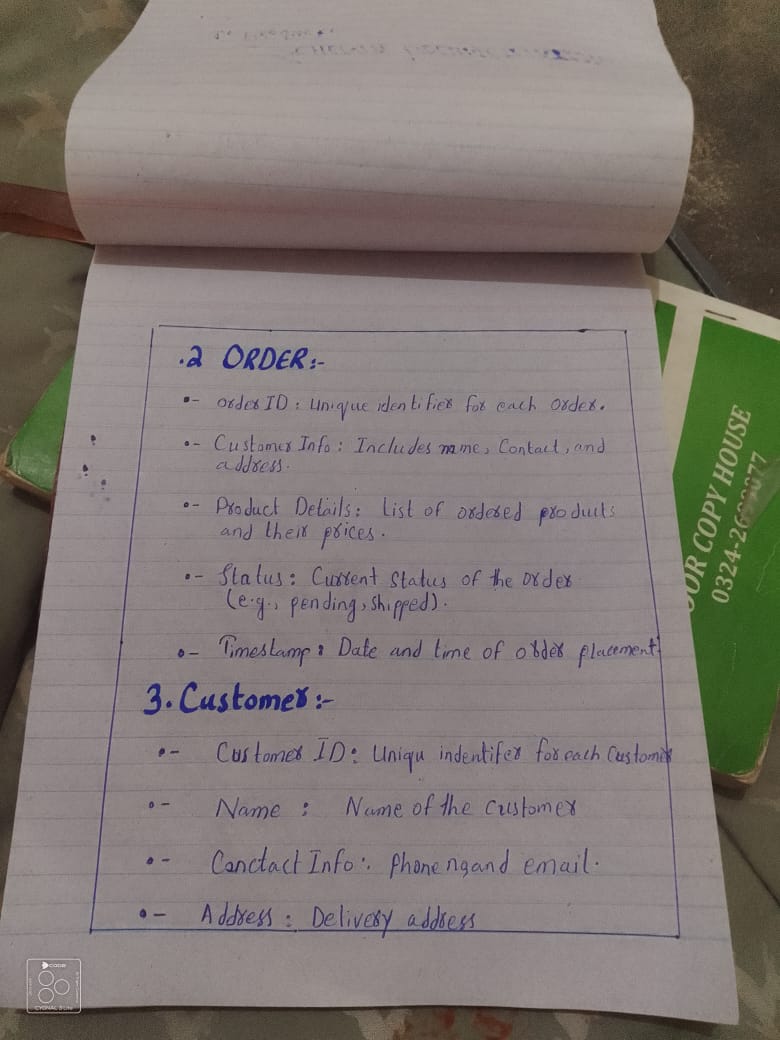 .2 ORDER:-
•- order ID : Unique identifier for each order.
•- Customer Info : Includes name, Contact, and
address.
•- Product Details : List of ordered products
and their prices.
•- Status : Current Status of the order
(e.g., pending, shipped).
•- Timestamp : Date and time of order placement.
3. Customer :-
•- Customer ID : Uniqu indentifer for each Customer
•- Name : Name of the customer
•- Conctact Info : Phone and email.
•- Address : Delivery address
OUR COPY HOUSE
CODE
CYGNAL 3 Lite